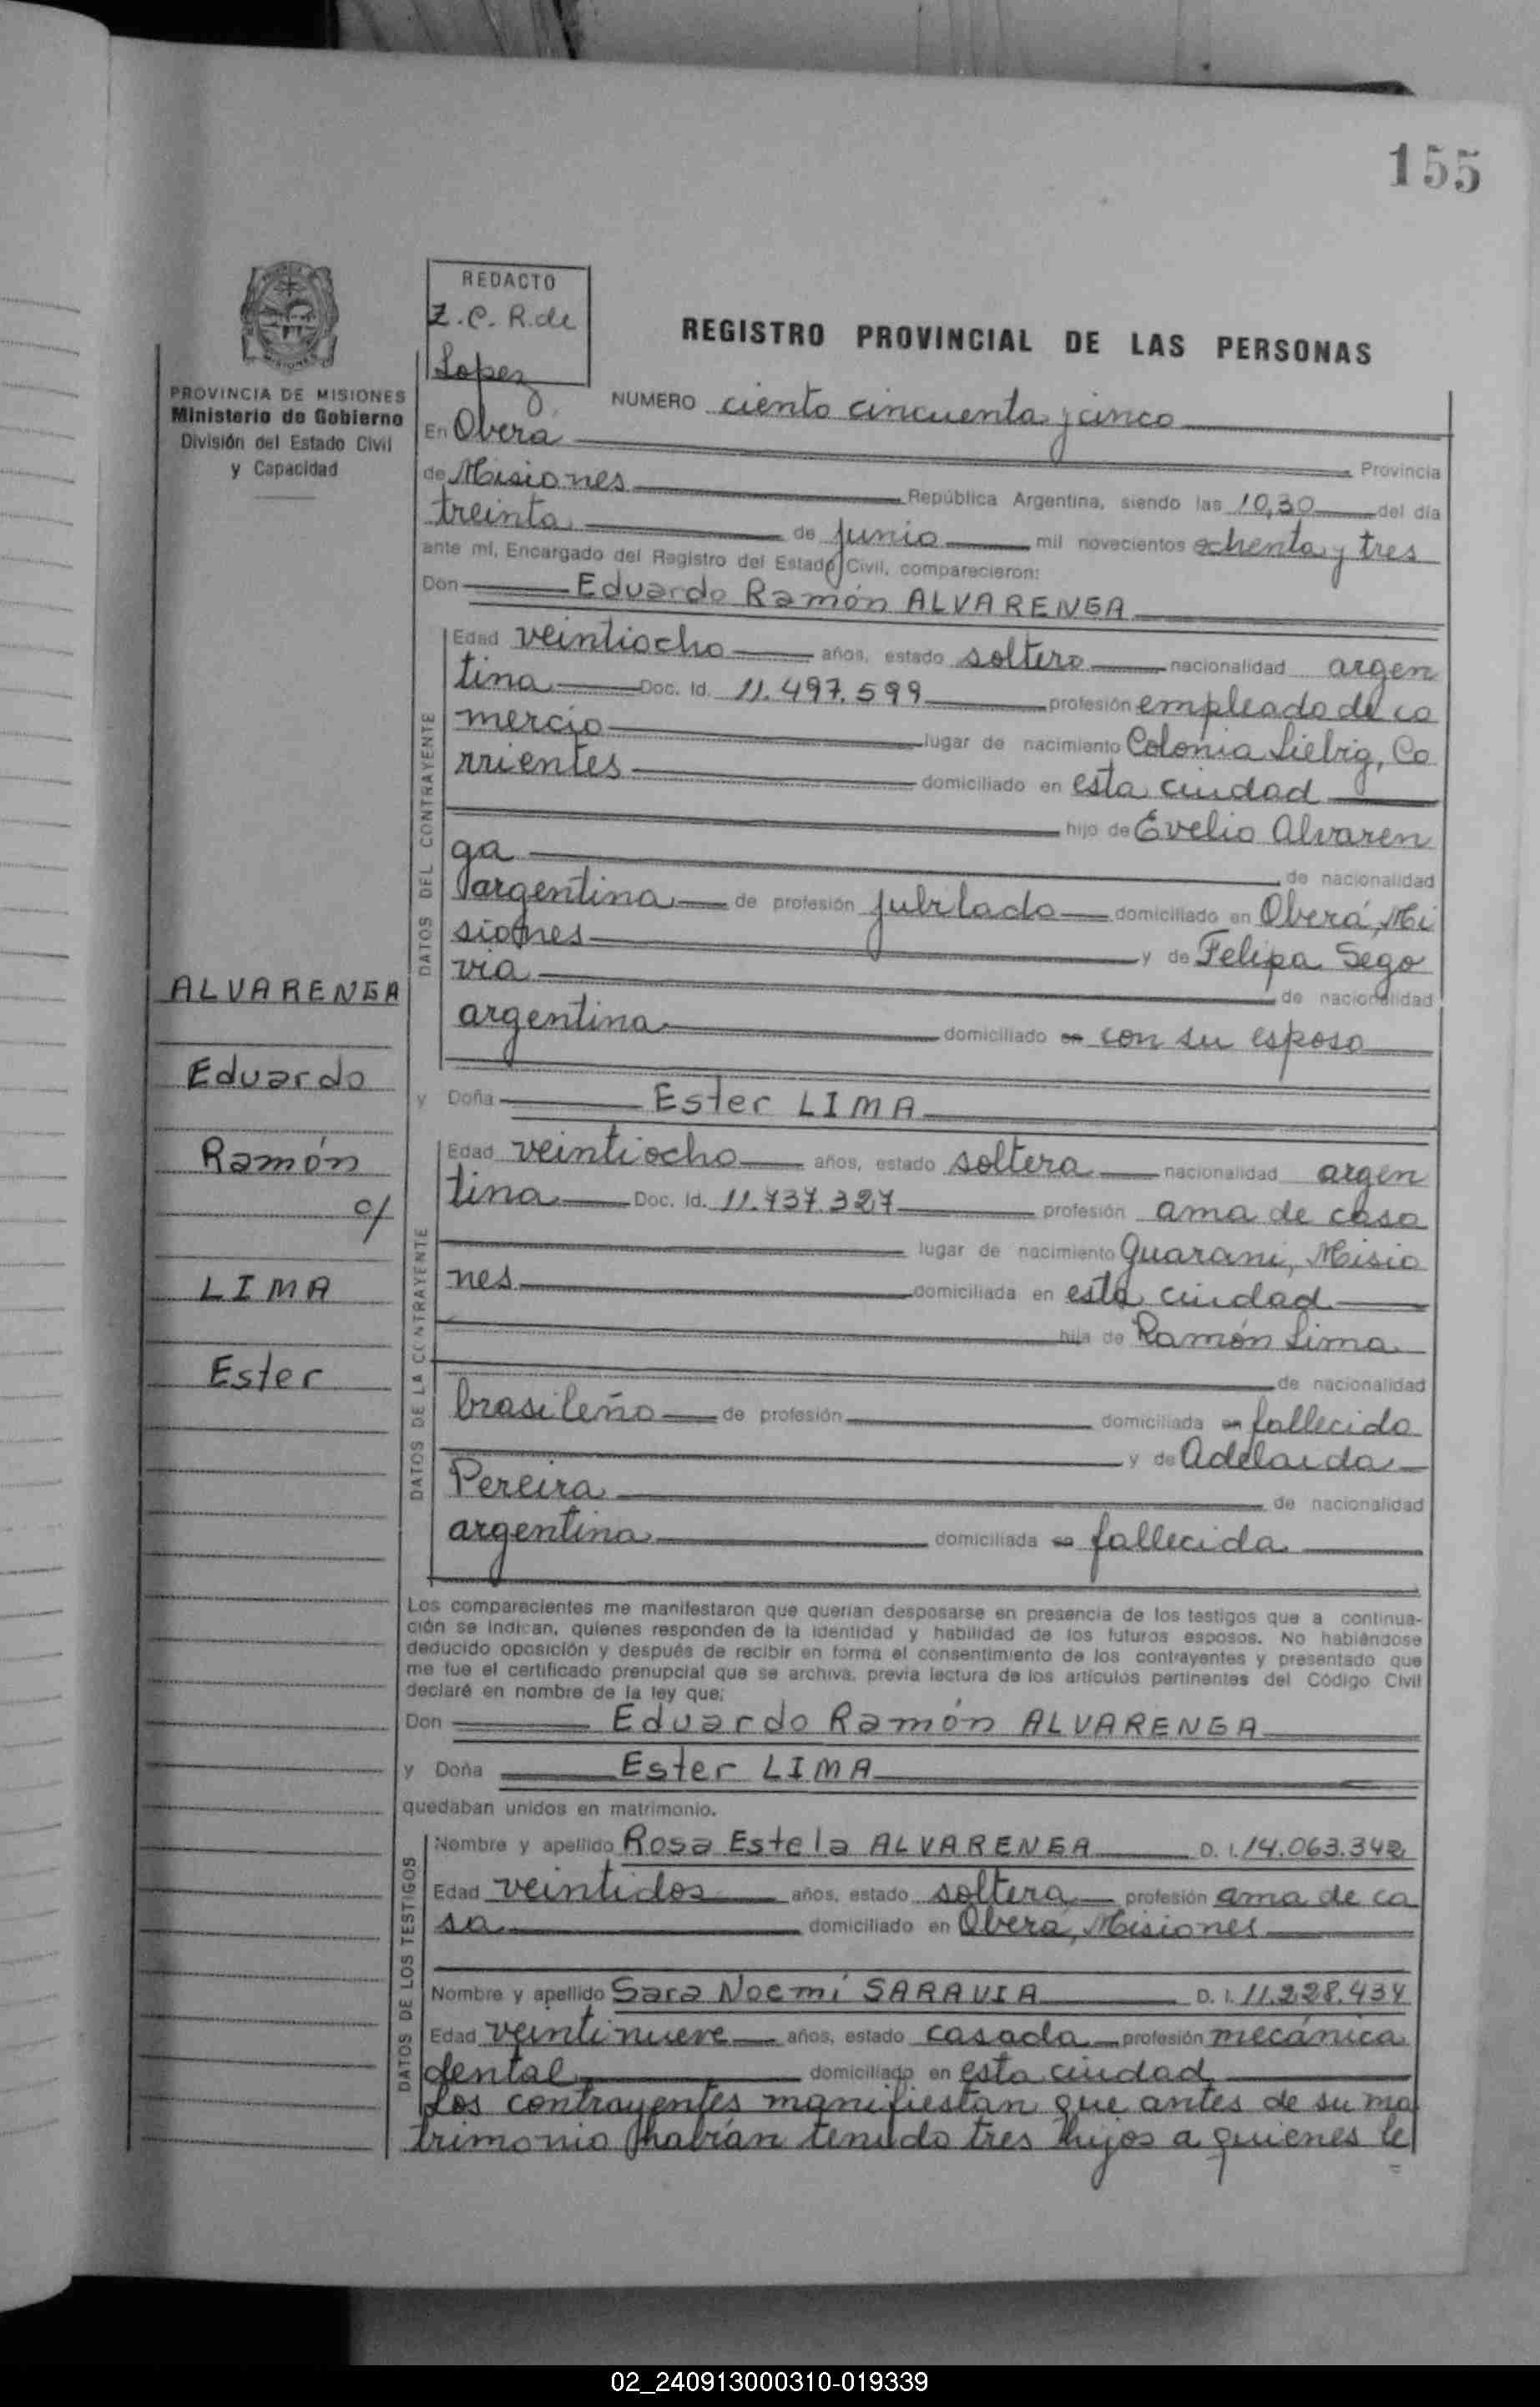 155
REDACTO
Z.C. R. de
Lopez
REGISTRO PROVINCIAL DE LAS PERSONAS
PROVINCIA DE MISIONES
Ministerio de Gobierno
División del Estado Civil
y Capacidad
NUMERO ciento cincuenta y cinco
En Oberá Provincia
de Misiones República Argentina, siendo las 10,30 del día
treinta de junio mil novecientos ochenta y tres
ante mí, Encargado del Registro del Estado Civil, comparecieron:
Don Eduardo Ramón ALVARENGA
DATOS DEL CONTRAYENTE
Edad veintiocho años, estado soltero nacionalidad argen
tina Doc. Id. 11.497.599 profesión empleado de co
mercio lugar de nacimiento Colonia Liebig, Co
rrientes domiciliado en esta ciudad
hijo de Evelio Alvaren
ga de nacionalidad
argentina de profesión jubilado domiciliado en Oberá, Mi
siones y de Felipa Sego
via de nacionalidad
argentina domiciliado en con su esposo
ALVARENGA
Eduardo
Ramón
c/
LIMA
Ester
y Doña Ester LIMA
DATOS DE LA CONTRAYENTE
Edad veintiocho años, estado soltera nacionalidad argen
tina Doc. Id. 11.737.327 profesión ama de casa
lugar de nacimiento Guarani, Misio
nes domiciliada en esta ciudad
hija de Ramón Lima
de nacionalidad
brasileño de profesión domiciliada en fallecido
y de Adelaida
Pereira de nacionalidad
argentina domiciliada en fallecida
Los comparecientes me manifestaron que querían desposarse en presencia de los testigos que a continua-
ción se indican, quienes responden de la identidad y habilidad de los futuros esposos. No habiéndose
deducido oposición y después de recibir en forma el consentimiento de los contrayentes y presentado que
me fue el certificado prenupcial que se archiva, previa lectura de los artículos pertinentes del Código Civil
declaré en nombre de la ley que;
Don Eduardo Ramón ALVARENGA
y Doña Ester LIMA
quedaban unidos en matrimonio.
DATOS DE LOS TESTIGOS
Nombre y apellido Rosa Estela ALVARENGA D. I. 14.063.342
Edad veintidos años, estado soltera profesión ama de ca
sa domiciliado en Oberá, Misiones
Nombre y apellido Sara Noemí SARAVIA D. I. 11.228.434
Edad veintinueve años, estado casada profesión mecánica
dental domiciliado en esta ciudad
Los contrayentes manifiestan que antes de su ma
trimonio habían tenido tres hijos a quienes le
02_240913000310-019339